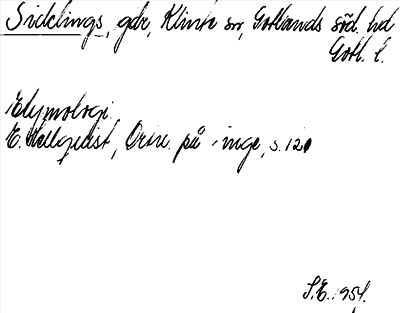 Sicklings, gdr, Klinte sn, Gotlands söd. hd
Gotl. l.
Etymologi.
E. Hellquist, Ortn. på -inge, s. 120
S.E. 1954.